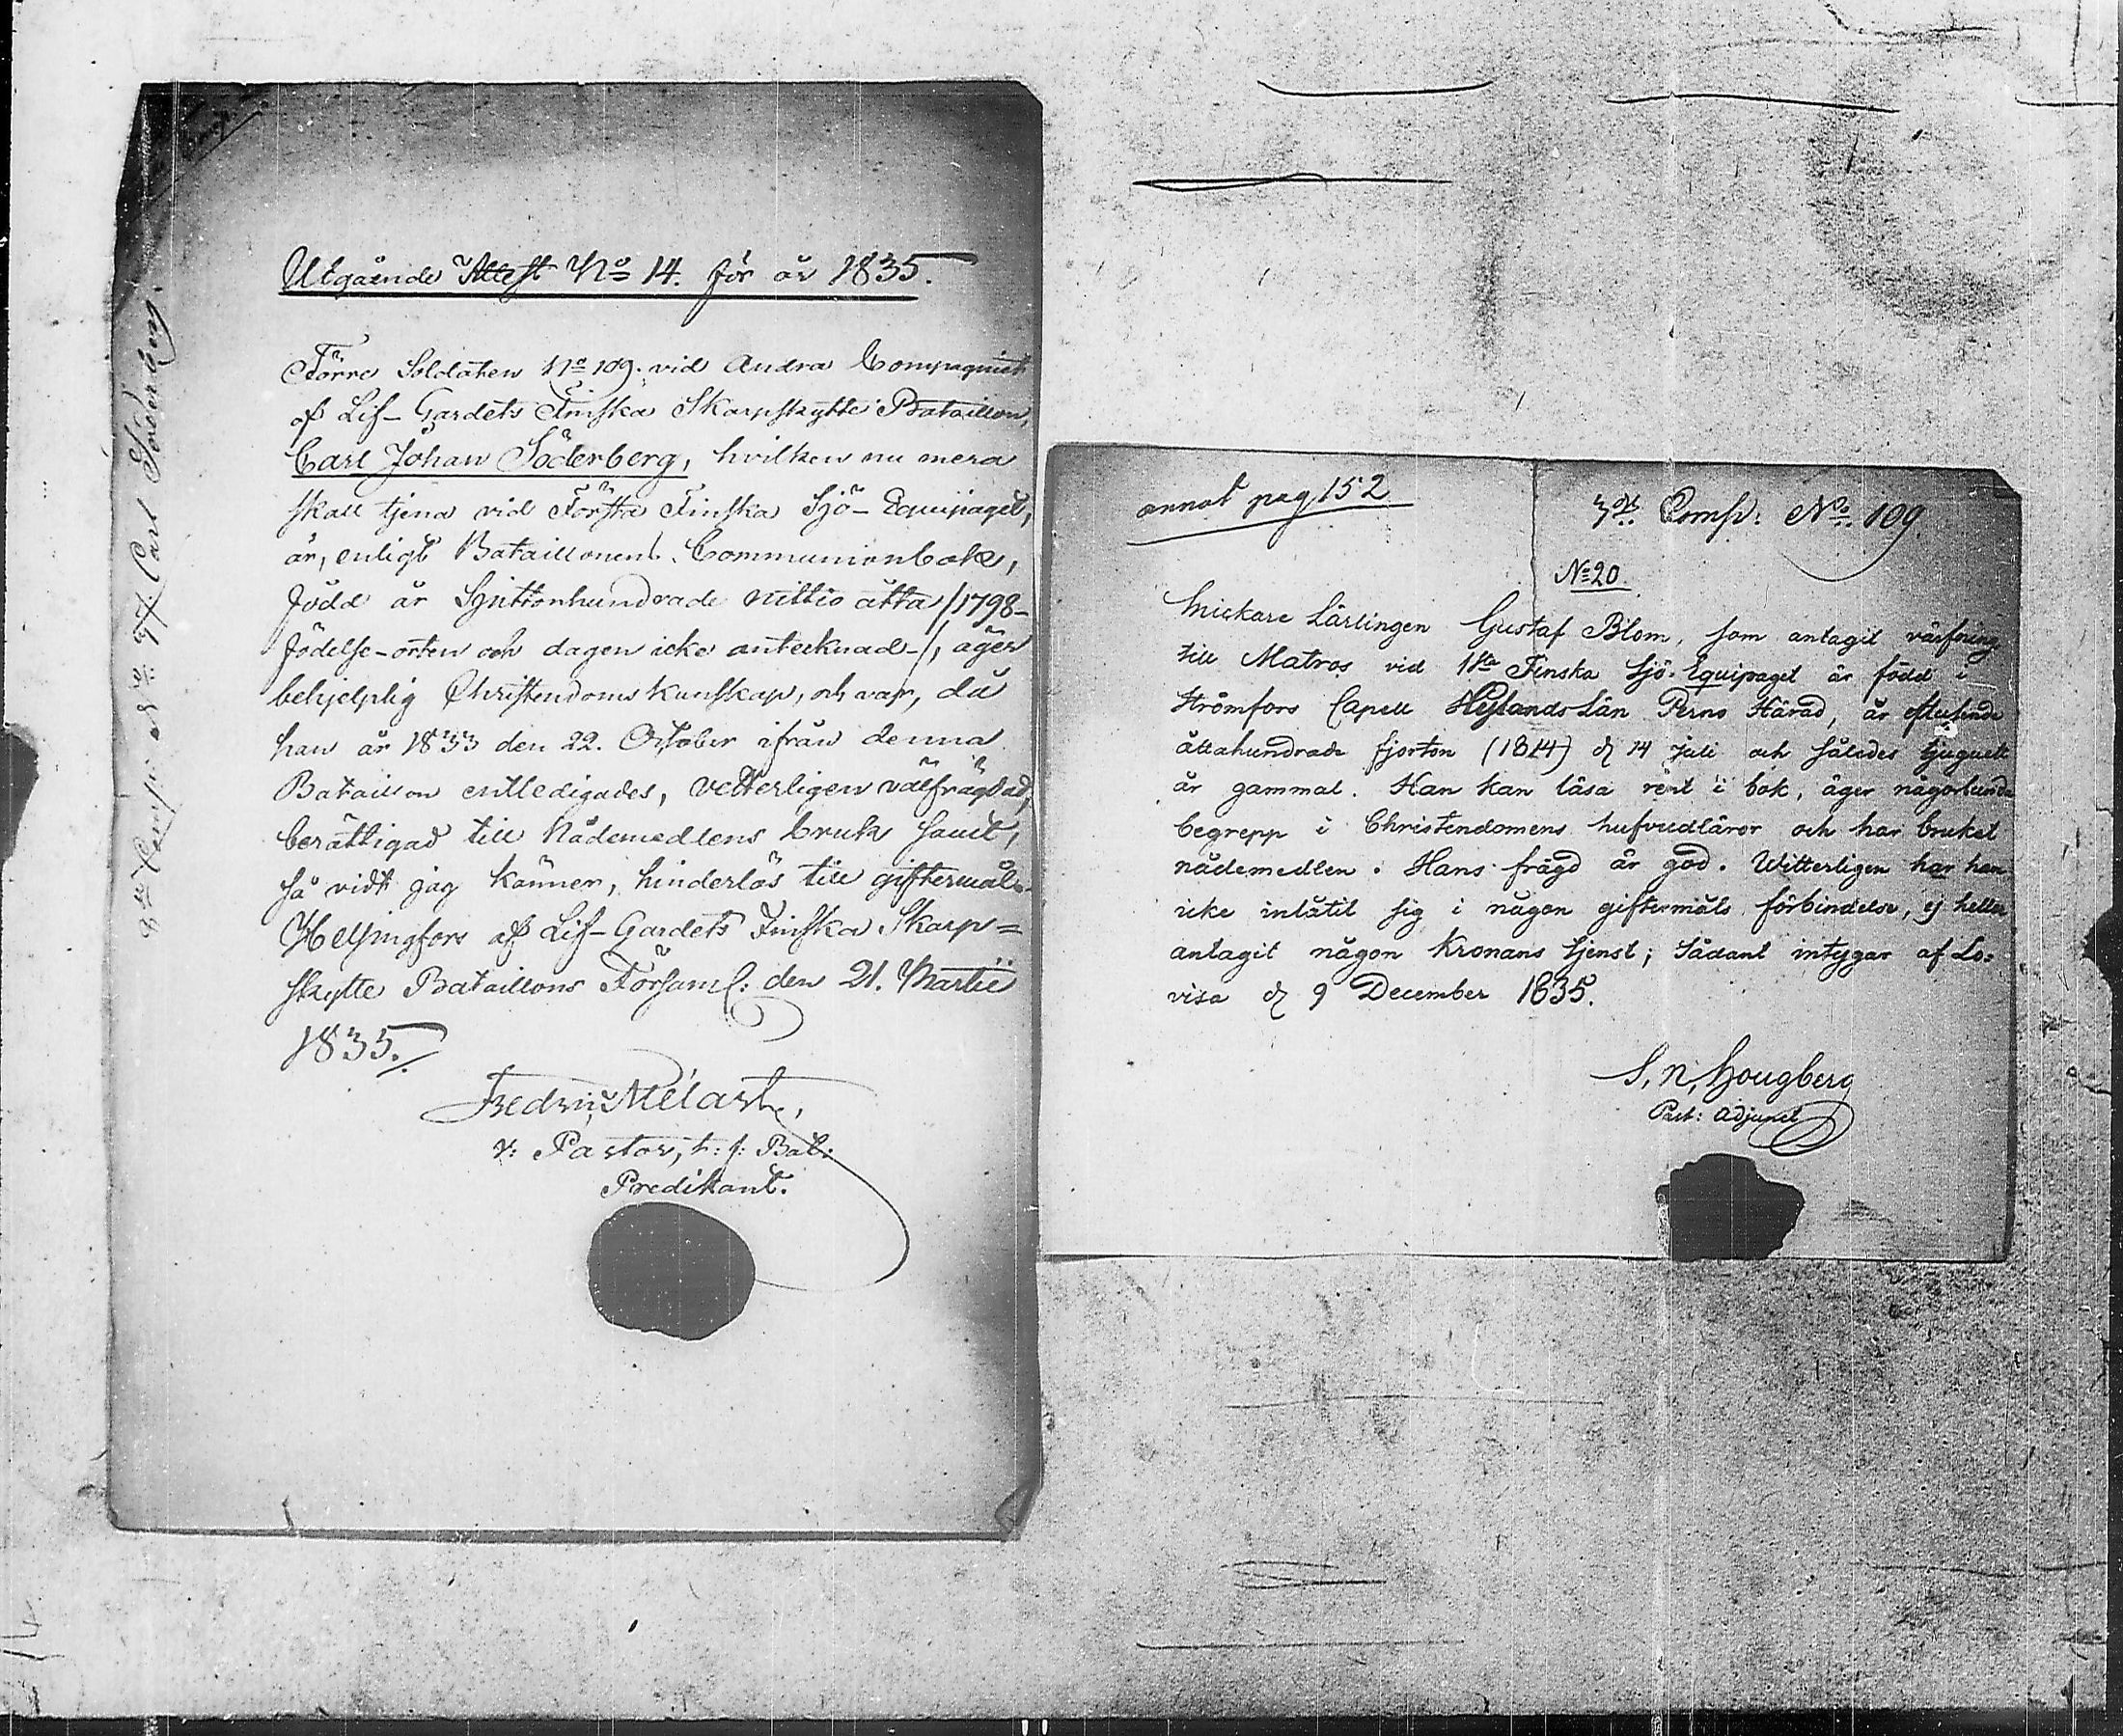 Utgående Attest No 14. för år 1835.
Förre Soldaten No 109. vid Andra Compagniet
af Lif-Gardets Finska Skarpskytte Bataillon,
Carl Johan Söderberg, hvilken nu mera
skall tjena vid Första Finska Sjö-Equipaget,
är, enligt Bataillonens Communionbok,
född år Sjuttonhundrade nittio åtta /1798-
födelse-orten och dagen icke antecknad-/, äger
behjelplig Christendoms kunskap, och var, då
han år 1833 den 22. October ifrån denna
Bataillon entledigades, vetterligen välfrägdad,
berättigad till Nådemedlens bruk samt,
så vidt jag känner, hinderlös till giftermål.
Helsingfors af Lif-Gardets Finska Skarp=
skytte Bataillons Församl: den 21. Martii
1835.
Fredric Melart,
v: Pastor, t: f: Bat:
Predikant.
No 97. Carl Söderberg.
annot pag 152
3dje Comp: No. 109.
No 20.
Snickare Lärlingen Gustaf Blom, som antagit värfning
till Matros vid 1sta Finska Sjö-Equipaget är född i
Strömfors Capell Nylands Län Perno Härad, år
åttahundrade fjorton (1814) d 14 Juli och således tjuguett
år gammal. Han kan läsa rent i bok, äger någorlunda
begrepp i Christendomens hufvudläror och har brukat
nådemedlen. Hans frägd är god. Witterligen har han
icke inlåtit sig i någon giftermåls förbindelse, ej heller
antagit någon Kronans tjenst; Sådant intygar af Lo=
visa d 9 December 1835.
S, N, Hougberg
Past: Adjunct